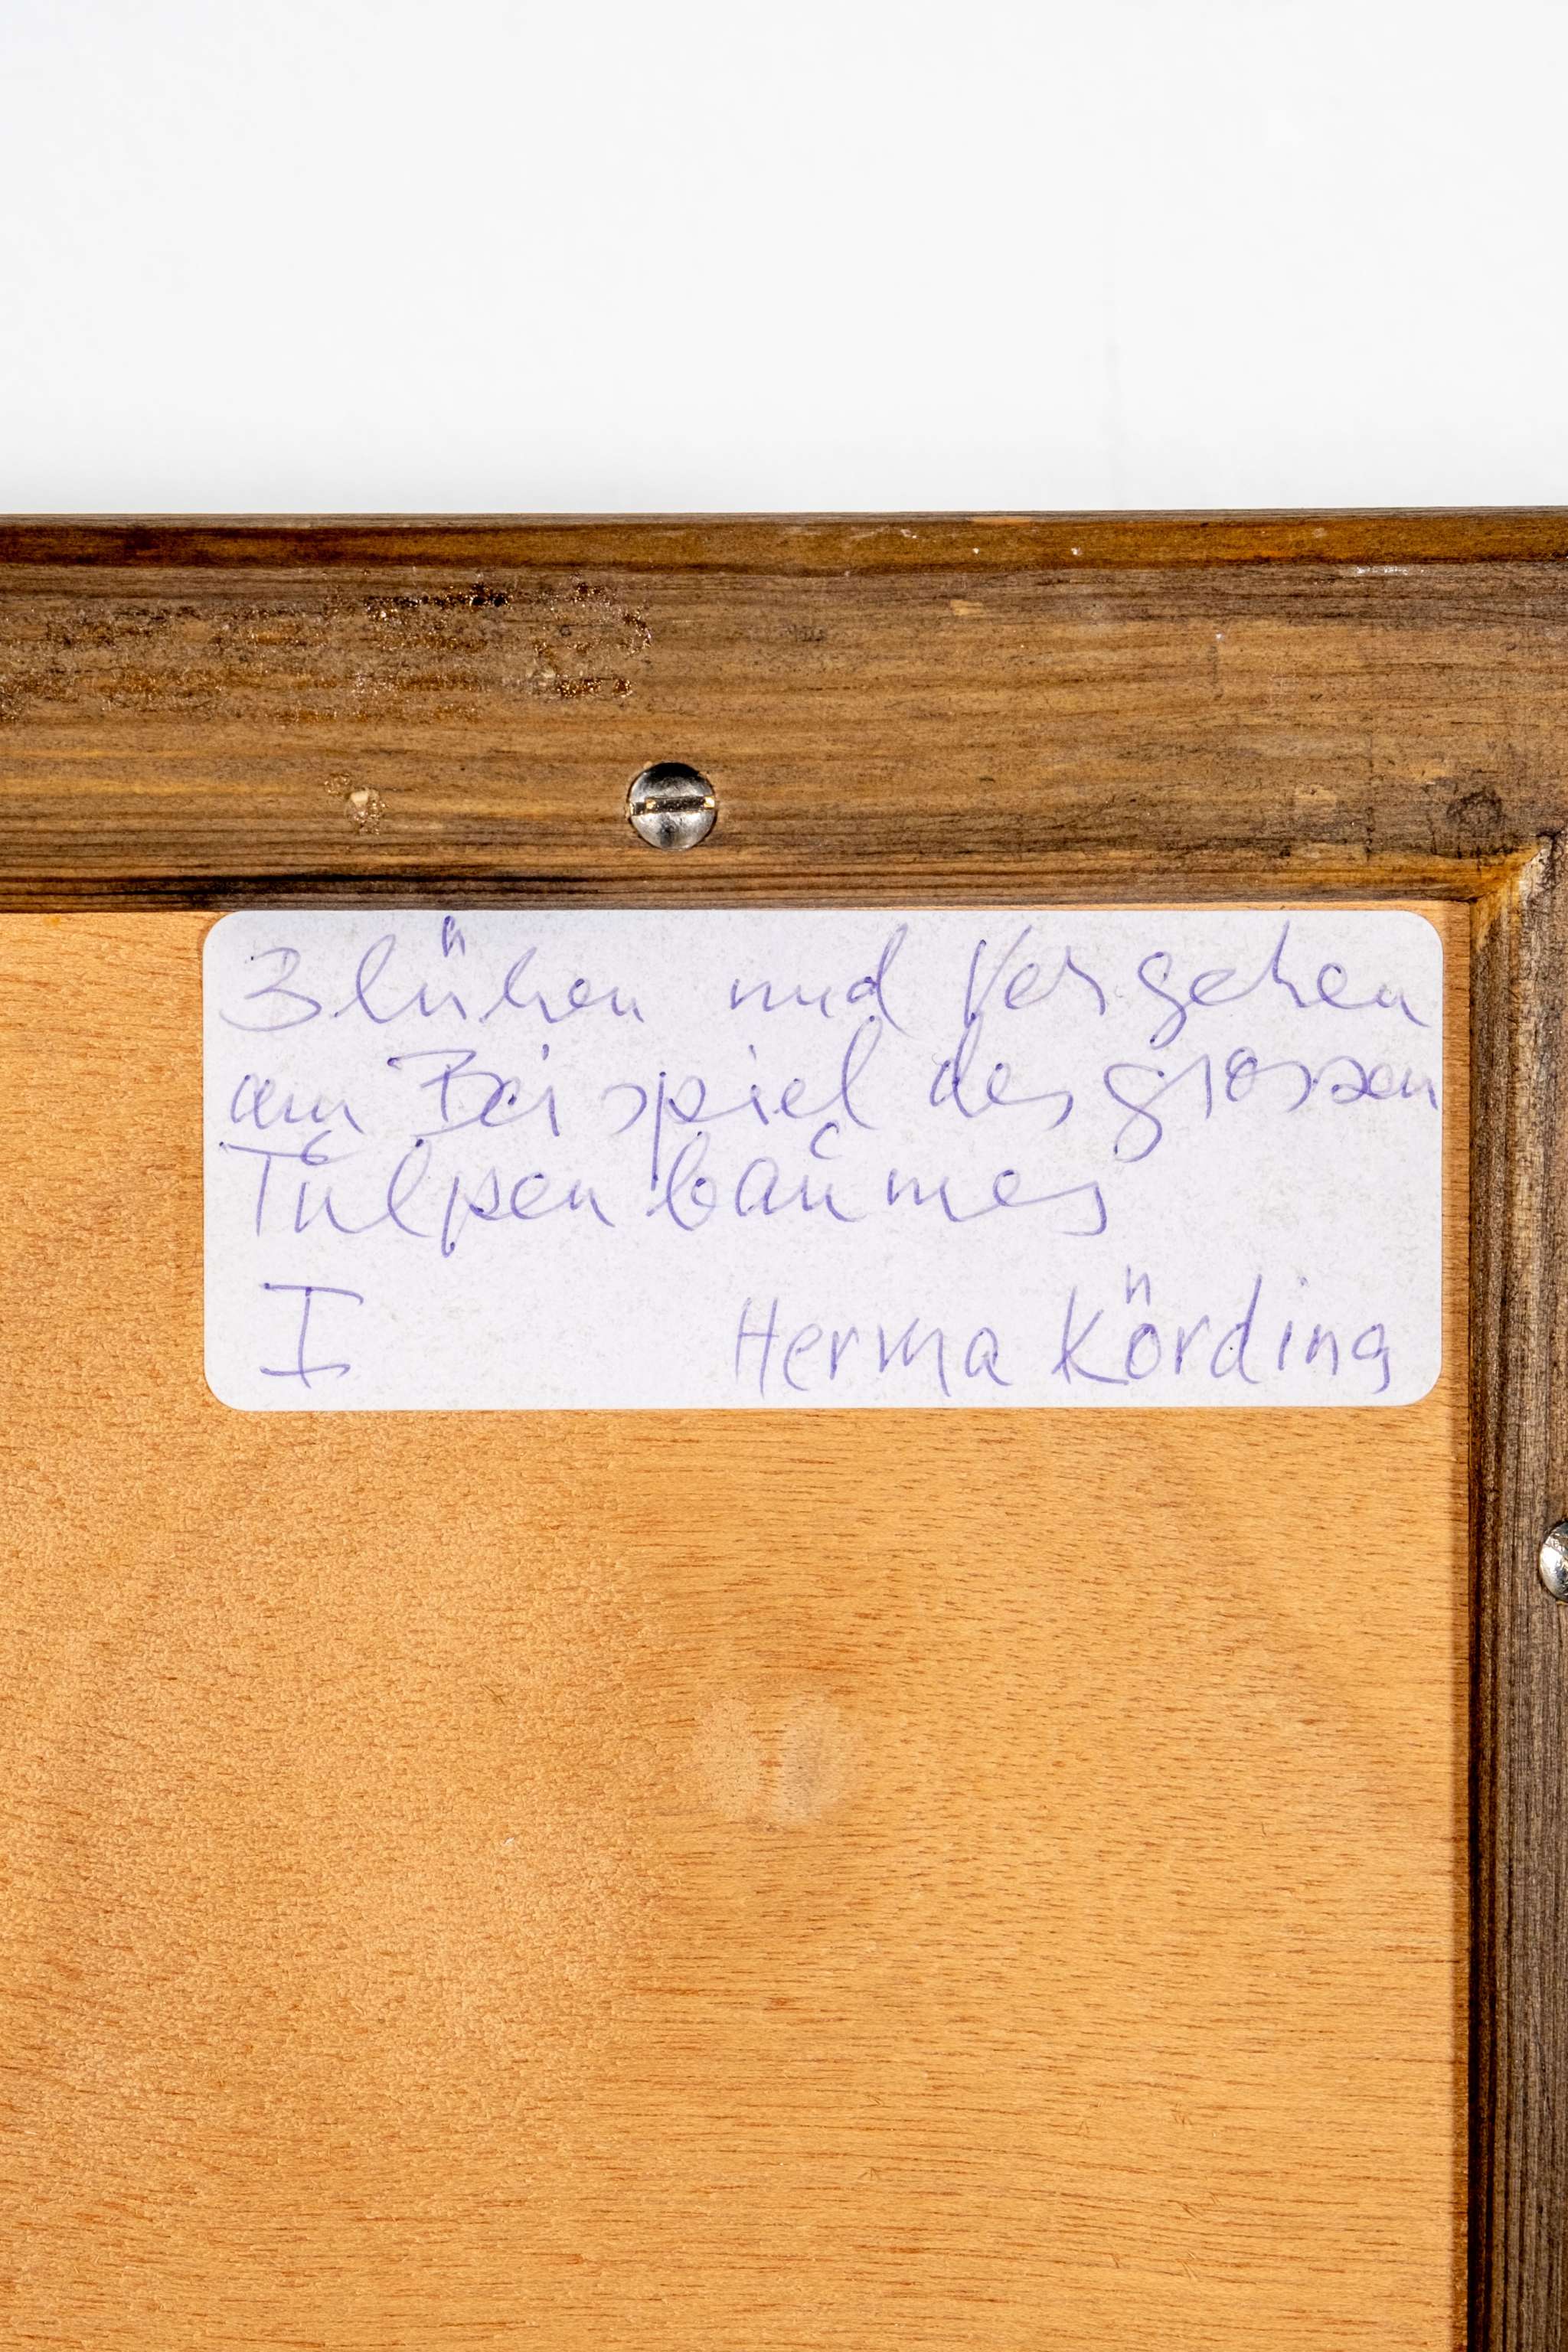 Blühen und Vergehen
am Beispiel des grossen
Tulpenbaumes
I Herma Körding